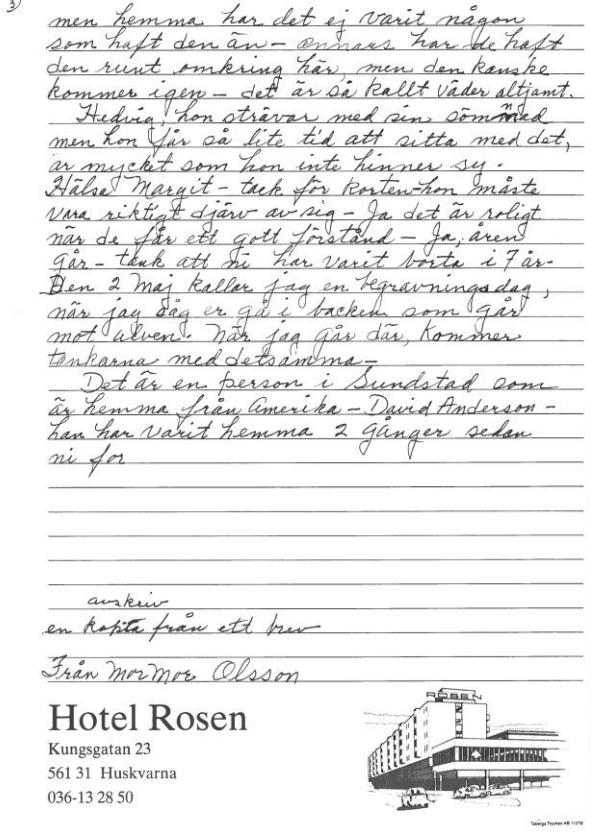 3)
men hemma har det ej varit någon
som haft den än – annars har de haft
den runt omkring här, men den kanske
kommer igen – det är så kallt väder altjamt.
Hedvig, hon strävar med sin sömnad
men hon får så lite tid att sitta med det,
är mycket som hon inte hinner sy.
Hälsa Margit – tack för korten – hon måste
vara riktigt djärv av sig – Ja det är roligt
när de får ett gott förstånd – Ja, åren
går – tänk att ni har varit borta i 7 år –
Den 2 Maj kallar jag en begravningsdag,
när jag såg er gå i backen som går
mot älven. När jag går där, kommer
tankarna med detsamma –
Det är en person i Sundstad som
är hemma från Amerika – David Anderson –
han har varit hemma 2 gånger sedan
ni for
avskriv
en kopia från ett brev
Från MorMor Olsson
Hotel Rosen
Kungsgatan 23
561 31 Huskvarna
036-13 28 50